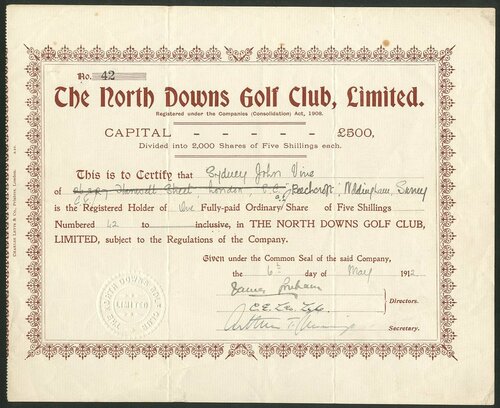 No. 42
The North Downs Golf Club, Limited.
Registered under the Companies (Consolidation) Act, 1908.
CAPITAL - - - - - £500,
Divided into 2,000 Shares of Five Shillings each.
This is to Certify that Sydney John Vine
of Street London Beechcroft, Surrey
is the Registered Holder of One Fully-paid Ordinary Share of Five Shillings
Numbered 42 to inclusive, in THE NORTH DOWNS GOLF CLUB,
LIMITED, subject to the Regulations of the Company.
Given under the Common Seal of the said Company,
the 6th day of May 1912
James
Directors.
Arthur
Secretary.
THE NORTH DOWNS GOLF CLUB
LIMITED